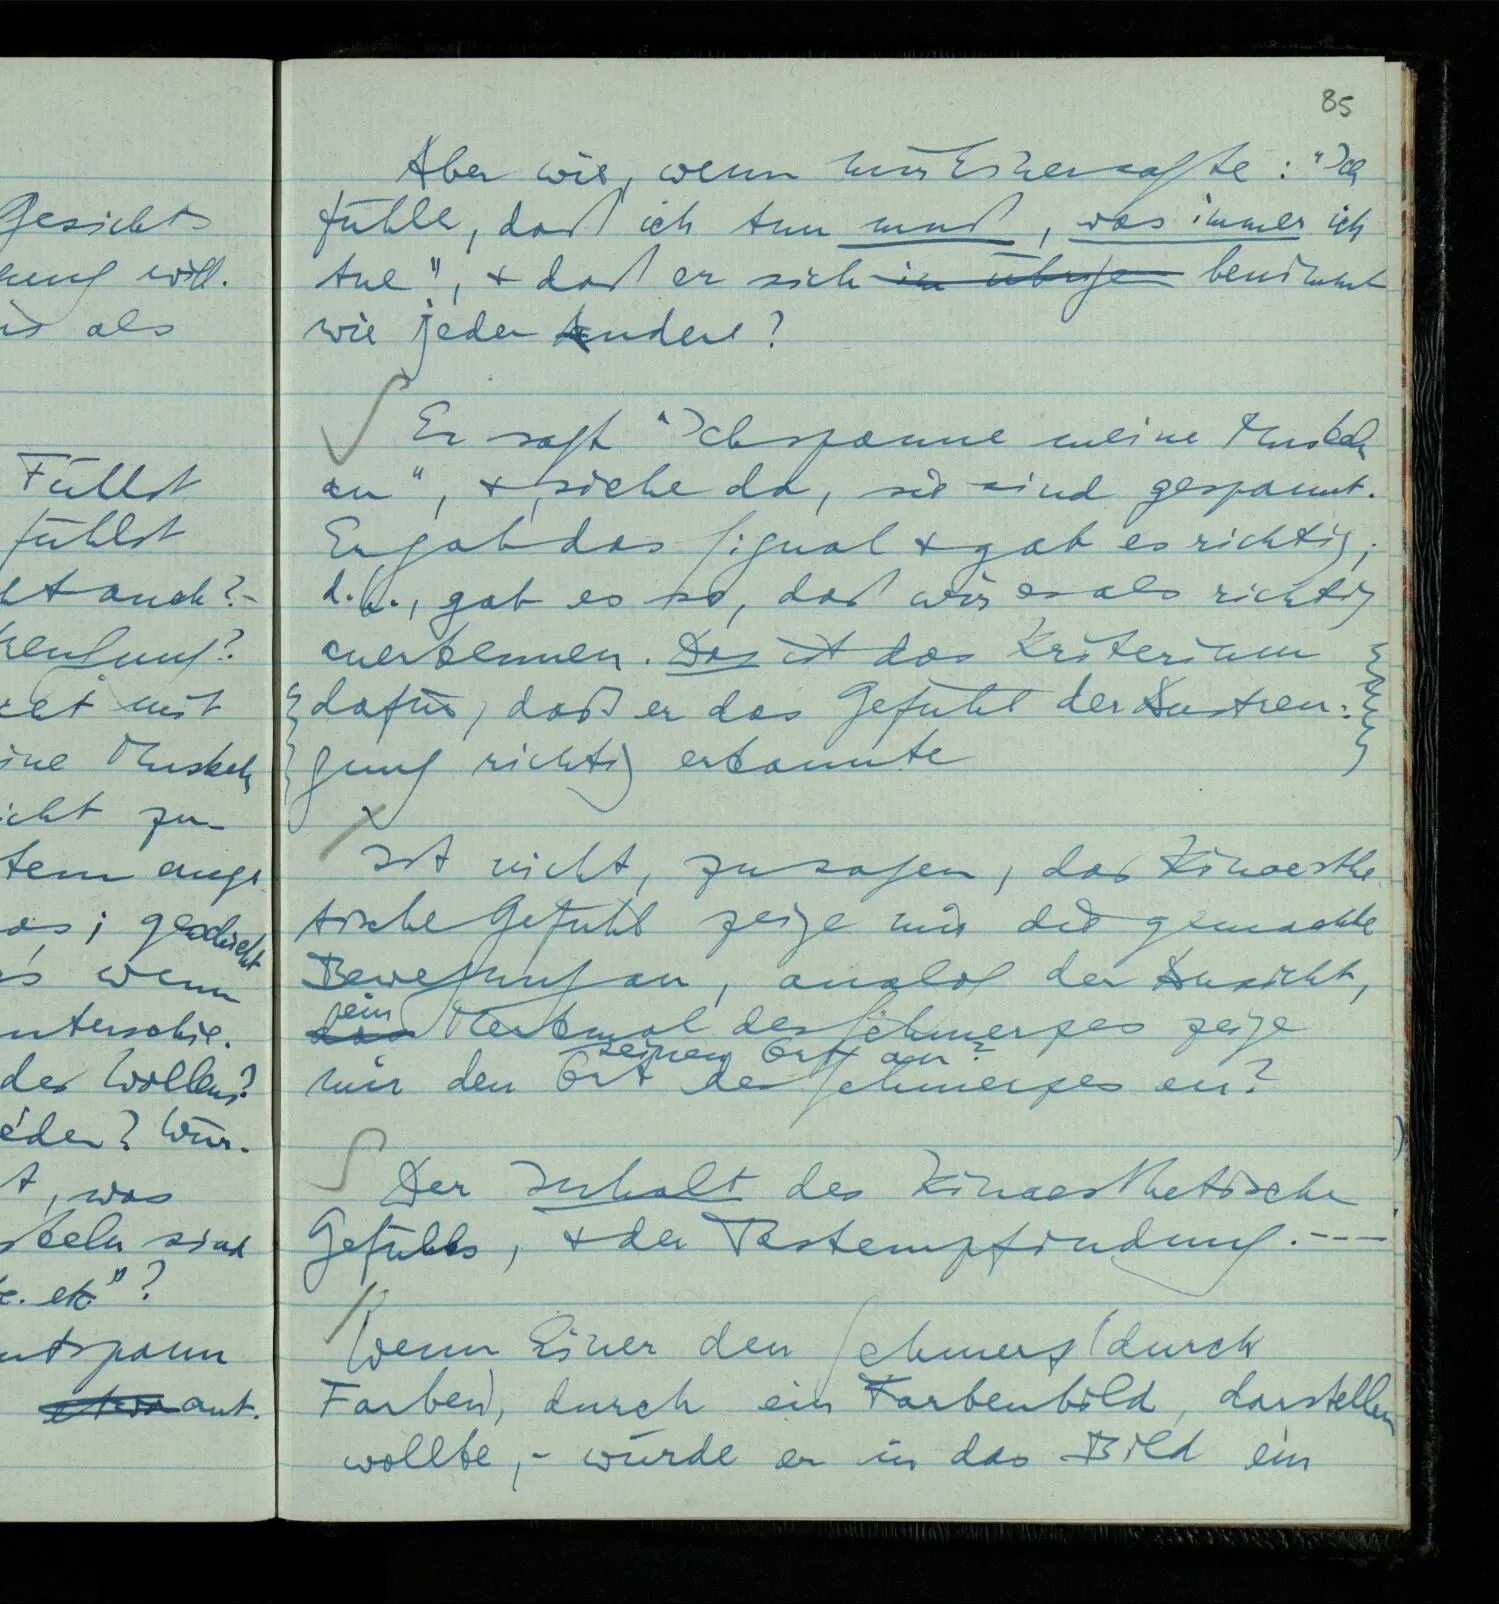 85
Gesichts
will.
als
Fühlst
fühlst
auch?-
mit
Muskeln
zu
; geschieht
wenn
unterschie-
des Wollens?
? Wür-
, was
sind
etc"?
entspann
etwa ant-
Aber wie, wenn nun Einer sagte: "Ich
fühle, daß ich tun muß, was immer ich
tue", + daß er sich im übrigen benimmt
wie jeder Andere?
Er sagt "Ich spanne meine Muskeln
an", + siehe da, sie sind gespannt.
Er gab das Signal + gab es richtig;
d.h., gab es so, daß wir es als richtig
anerkennen. Das ist das Kriterium
dafür, daß er das Gefühl der Anstren-
gung richtig erkannte
Ist nicht, zu sagen, das Kinaesthe
tische Gefühl zeige mir die gemachte
Bewegung an, analog der Ansicht,
ein
das Merkmal des Schmerzes zeige
seinen Ort an?
mir den Ort des Schmerzes an?
Der Inhalt des Kinaesthetische
Gefühls, + der Tastempfindung. ---
Wenn Einer den Schmerz durch
Farben, durch ein Farbenbild, darstellen
wollte, - würde er in das Bild ein